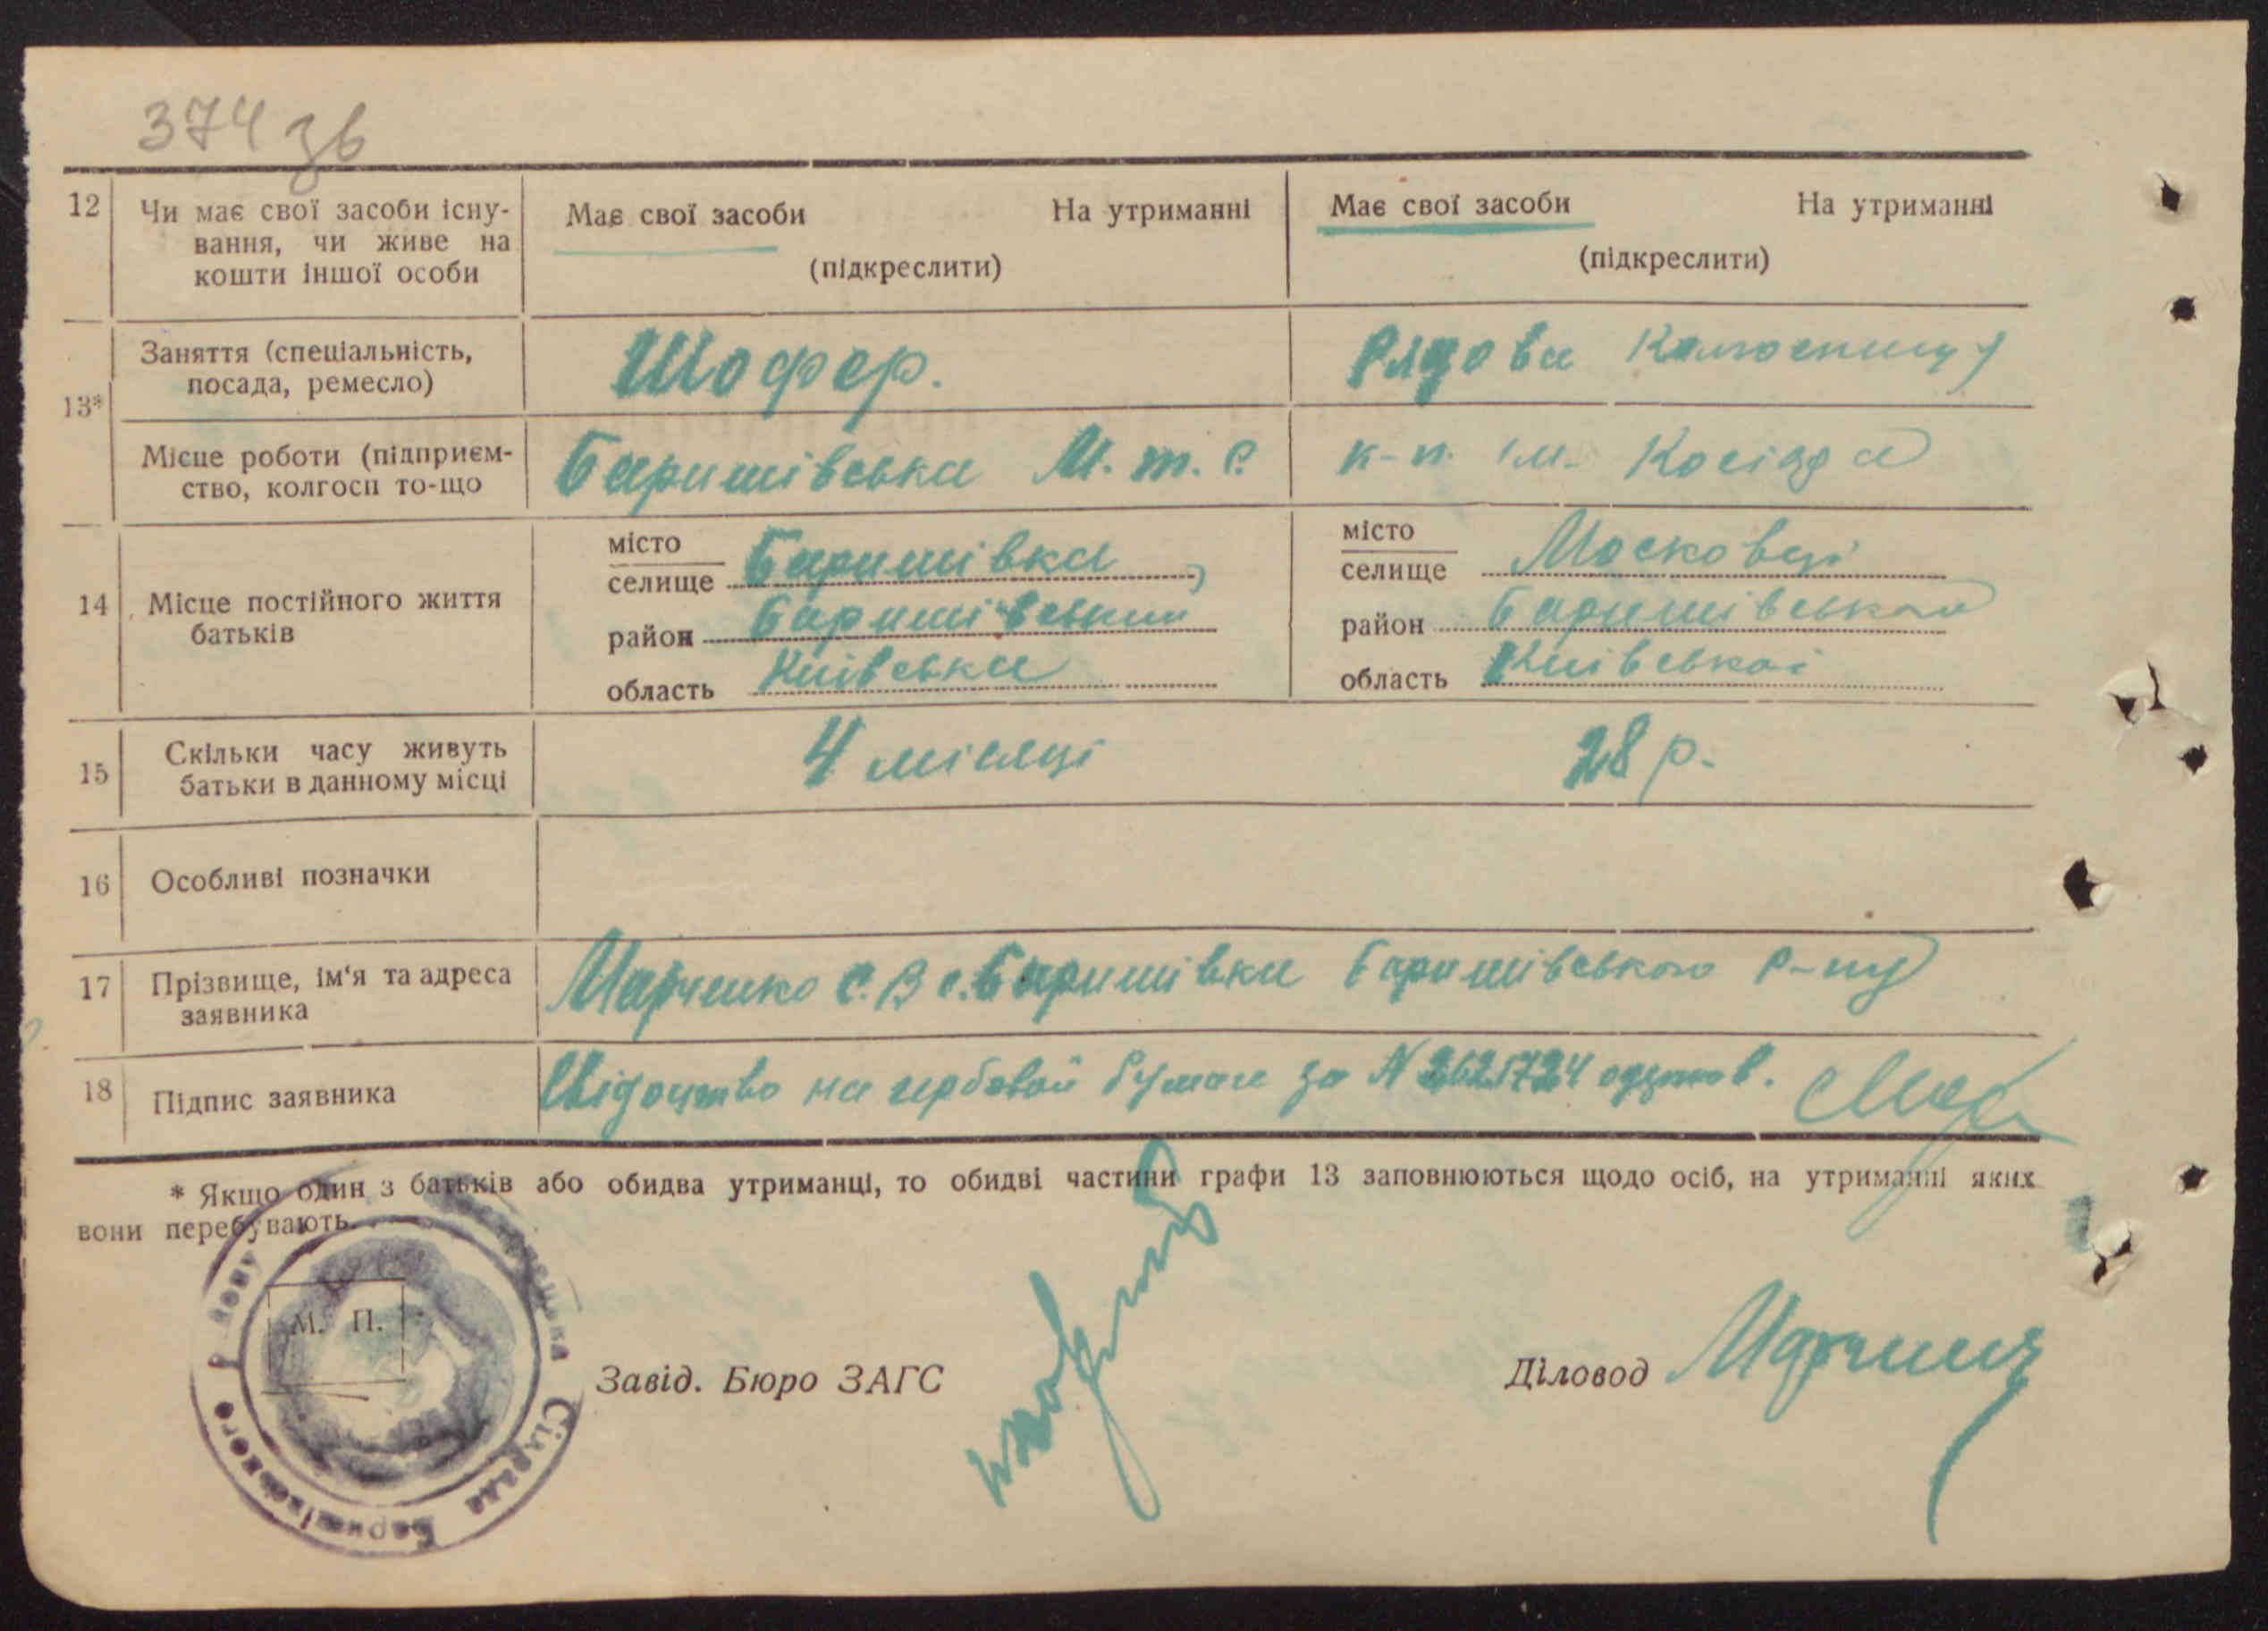 374 зв
12 Чи має свої засоби існу-
вання, чи живе на
кошти іншої особи
Має свої засоби На утриманні
(підкреслити)
Має свої засоби На утриманні
(підкреслити)
13*
Заняття (спеціальність,
посада, ремесло)
Шофер.
Рядова
Місце роботи (підприєм-
ство, колгосп то-що
Баришівська М.т.с.
к-п. ім. Косіора
14 Місце постійного життя
батьків
місто
селище Баришівка
район Баришівський
область Київська
місто
селище Московці
район Баришівського
область Київської
15 Скільки часу живуть
батьки в данному місці
4 місяці
28 р.
16 Особливі позначки
17 Прізвище, ім‘я та адреса
заявника
Марченко С.В с. Баришівки Баришівського р-ну
18 Підпис заявника
Свідоцтво на гербовой бумаге за N 2625724
* Якщо один з батьків або обидва утриманці, то обидві частини графи 13 заповнюються щодо осіб, на утриманні яких
вони перебувають.
М. П.
Сільрада Баришівського району
Завід. Бюро ЗАГС
Діловод